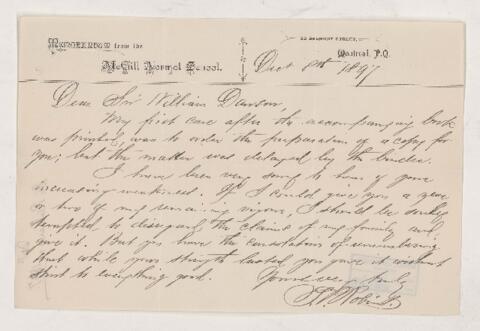 Memorandum from the
McGill Normal School.
32 Belmont Street,
Montreal, P.Q.
Oct 8th 1897
Dear Sir William Dawson,
My first care after the accompanying book
was printed, was to order the preparation of a copy for
you; but the matter was delayed by the binder.
I have been very sorry to hear of your
increasing weakness. If I could give you a year
or two of my remaining vigour, I should be sorely
tempted to disregard the claims of my family and
give it. But you have the consolation of remembering
that while your strength lasted you gave it without
stint to everything good.
Yours very truly
S. P. Robins.